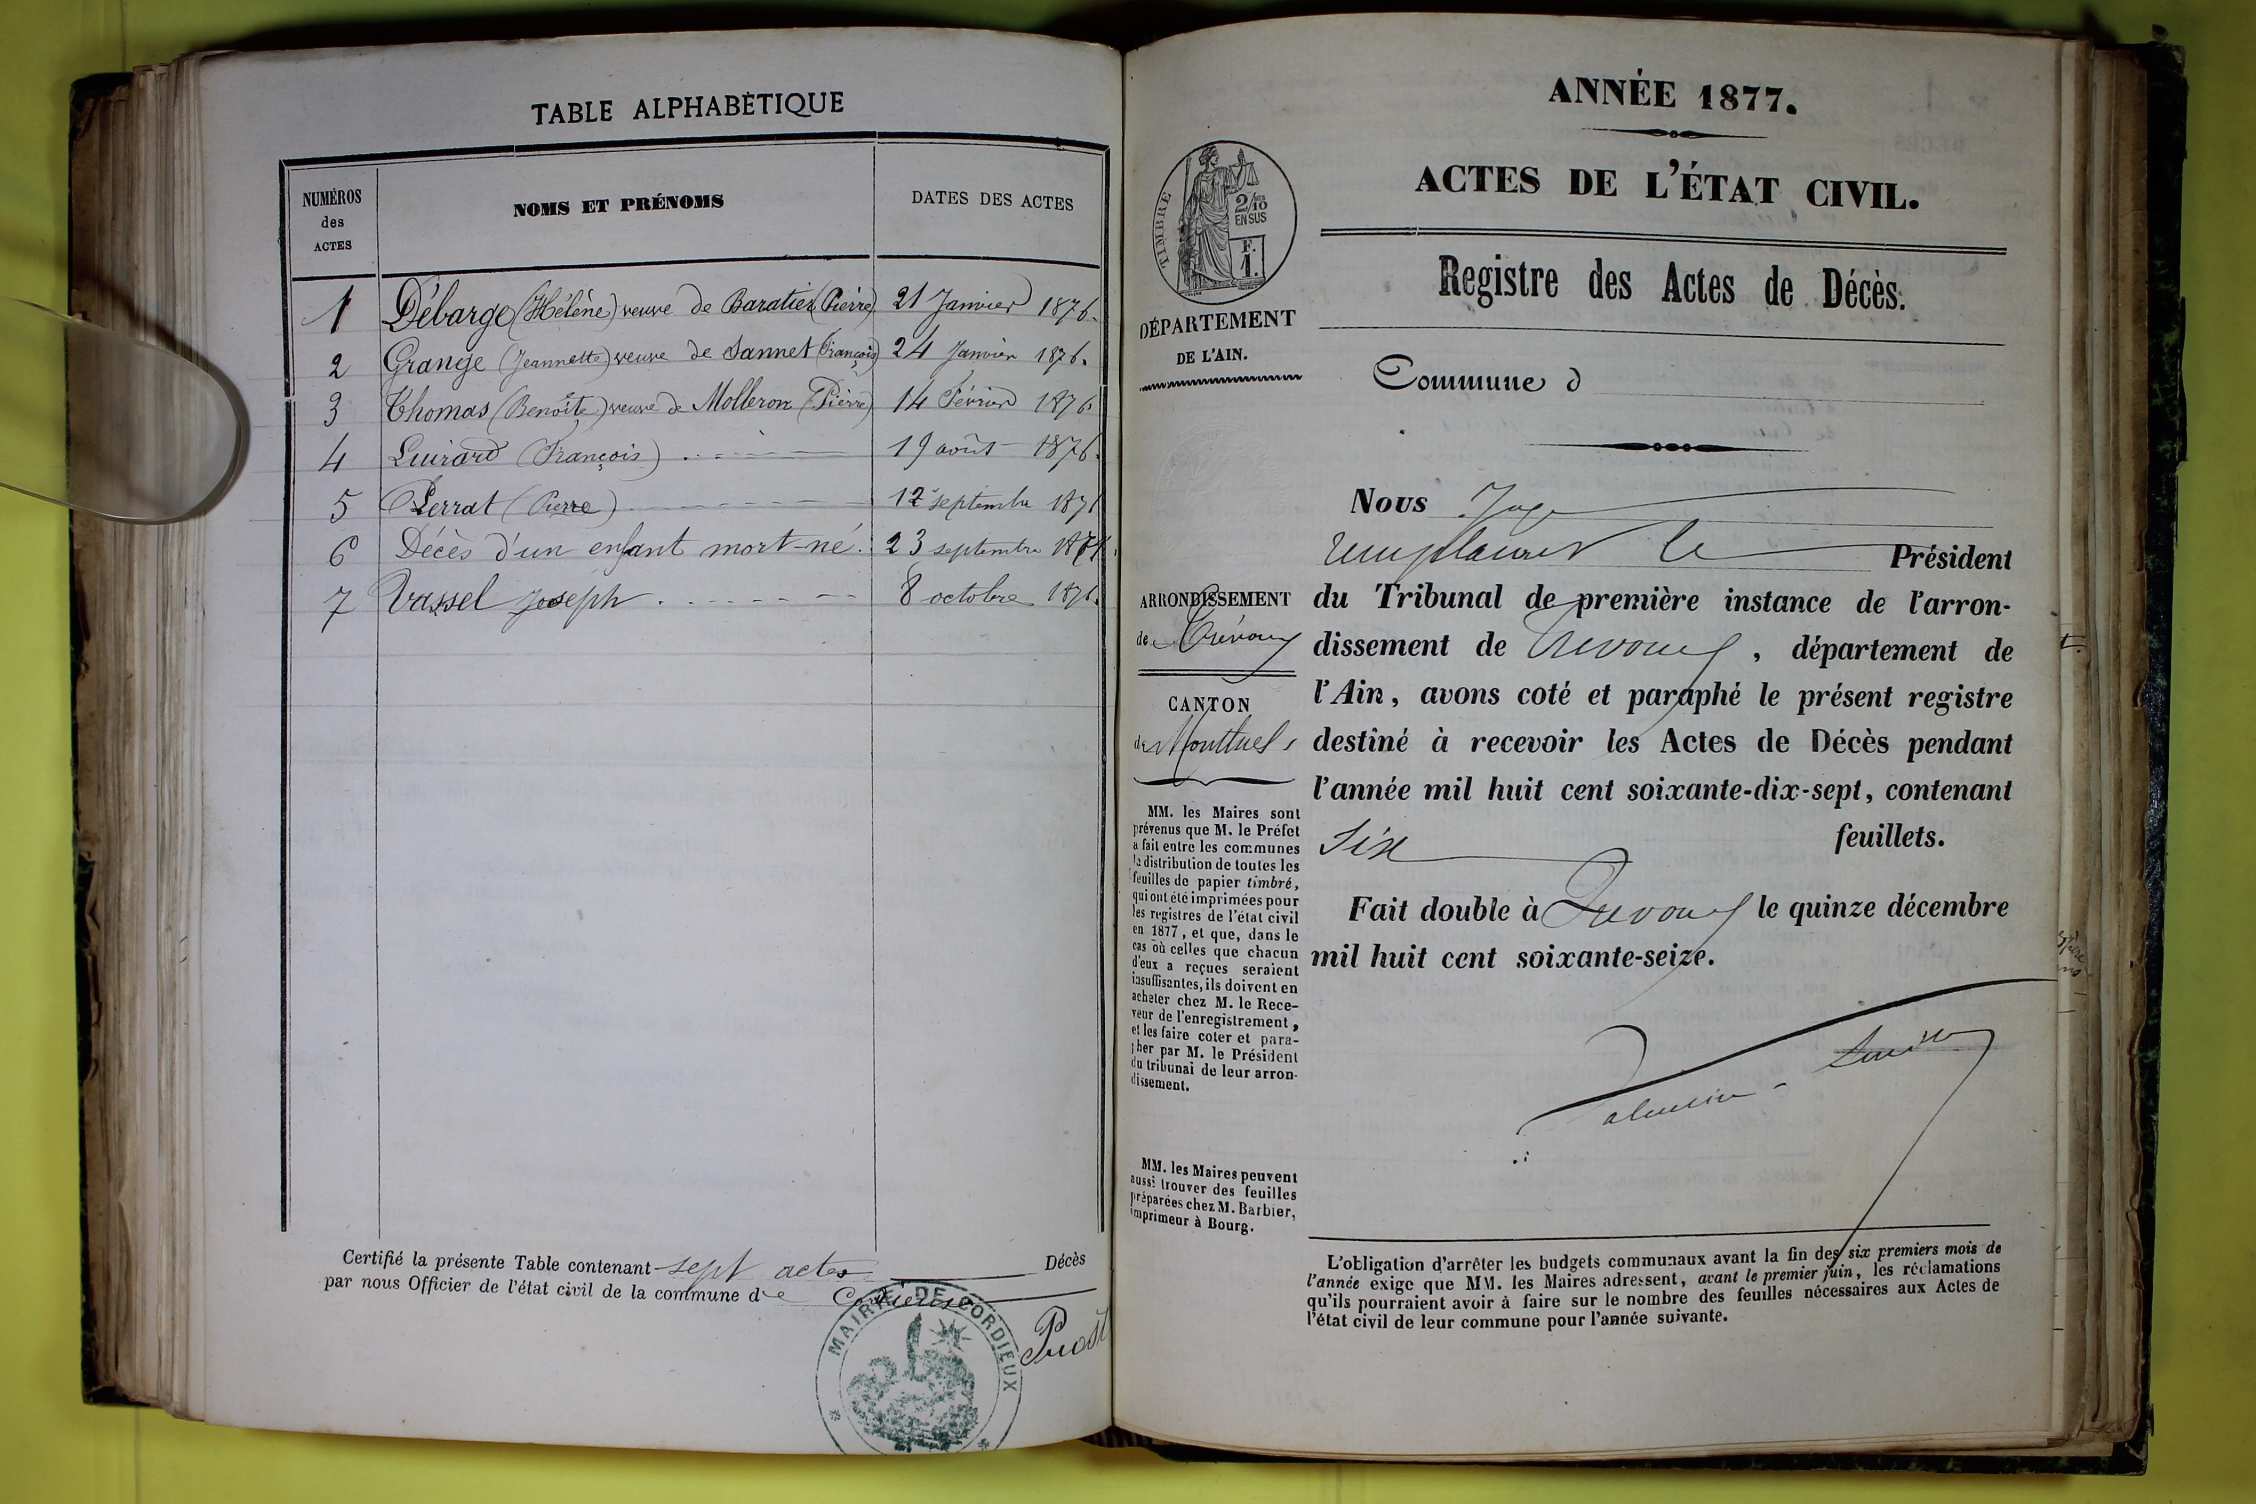 TABLE ALPHABÉTIQUE
NUMÉROS des ACTES
NOMS ET PRÉNOMS
DATES DES ACTES
1 Débarge (Hélène) veuve de Baratier (Pierre) 21 Janvier 1876.
2 Grange (Jeannette) veuve de Jannet (François) 24 Janvier 1876.
3 Thomas (Benoîte) veuve de Molleron (Pierre) 14 Février 1876.
4 Luirard (François) 19 août 1876.
5 Perrat (Pierre) 12 septembre 1876
6 Décès d'un enfant mort-né. 23 septembre 1876.
7 Vassel Joseph 8 octobre 1876.
Certifié la présente Table contenant sept actes Décès
par nous Officier de l'état civil de la commune de Cordieux
MAIRIE DE CORDIEUX
Prost
ANNÉE 1877.
ACTES DE L'ÉTAT CIVIL.
TIMBRE
2/10
EN SUS
F.
1.
Registre des Actes de Décès.
DÉPARTEMENT
DE L'AIN.
Commune d
Nous Juge
remplaçant le Président
ARRONDISSEMENT
de Trévoux
CANTON
de Montluel
du Tribunal de première instance de l'arron-
dissement de Trévoux, département de
l'Ain, avons coté et paraphé le présent registre
destiné à recevoir les Actes de Décès pendant
l'année mil huit cent soixante-dix-sept, contenant
six feuillets.
Fait double à Trévoux le quinze décembre
mil huit cent soixante-seize.
MM. les Maires sont
prévenus que M. le Préfet
a fait entre les communes
la distribution de toutes les
feuilles de papier timbré,
qui ont été imprimées pour
les registres de l'état civil
en 1877, et que, dans le
cas où celles que chacun
d'eux a reçues seraient
insuffisantes, ils doivent en
acheter chez M. le Rece-
veur de l'enregistrement,
et les faire coter et para-
pher par M. le Président
du tribunal de leur arron-
dissement.
MM. les Maires peuvent
aussi trouver des feuilles
préparées chez M. Barbier,
imprimeur à Bourg.
L'obligation d'arrêter les budgets communaux avant la fin des six premiers mois de
l'année exige que MM. les Maires adressent, avant le premier juin, les réclamations
qu'ils pourraient avoir à faire sur le nombre des feuilles nécessaires aux Actes de
l'état civil de leur commune pour l'année suivante.